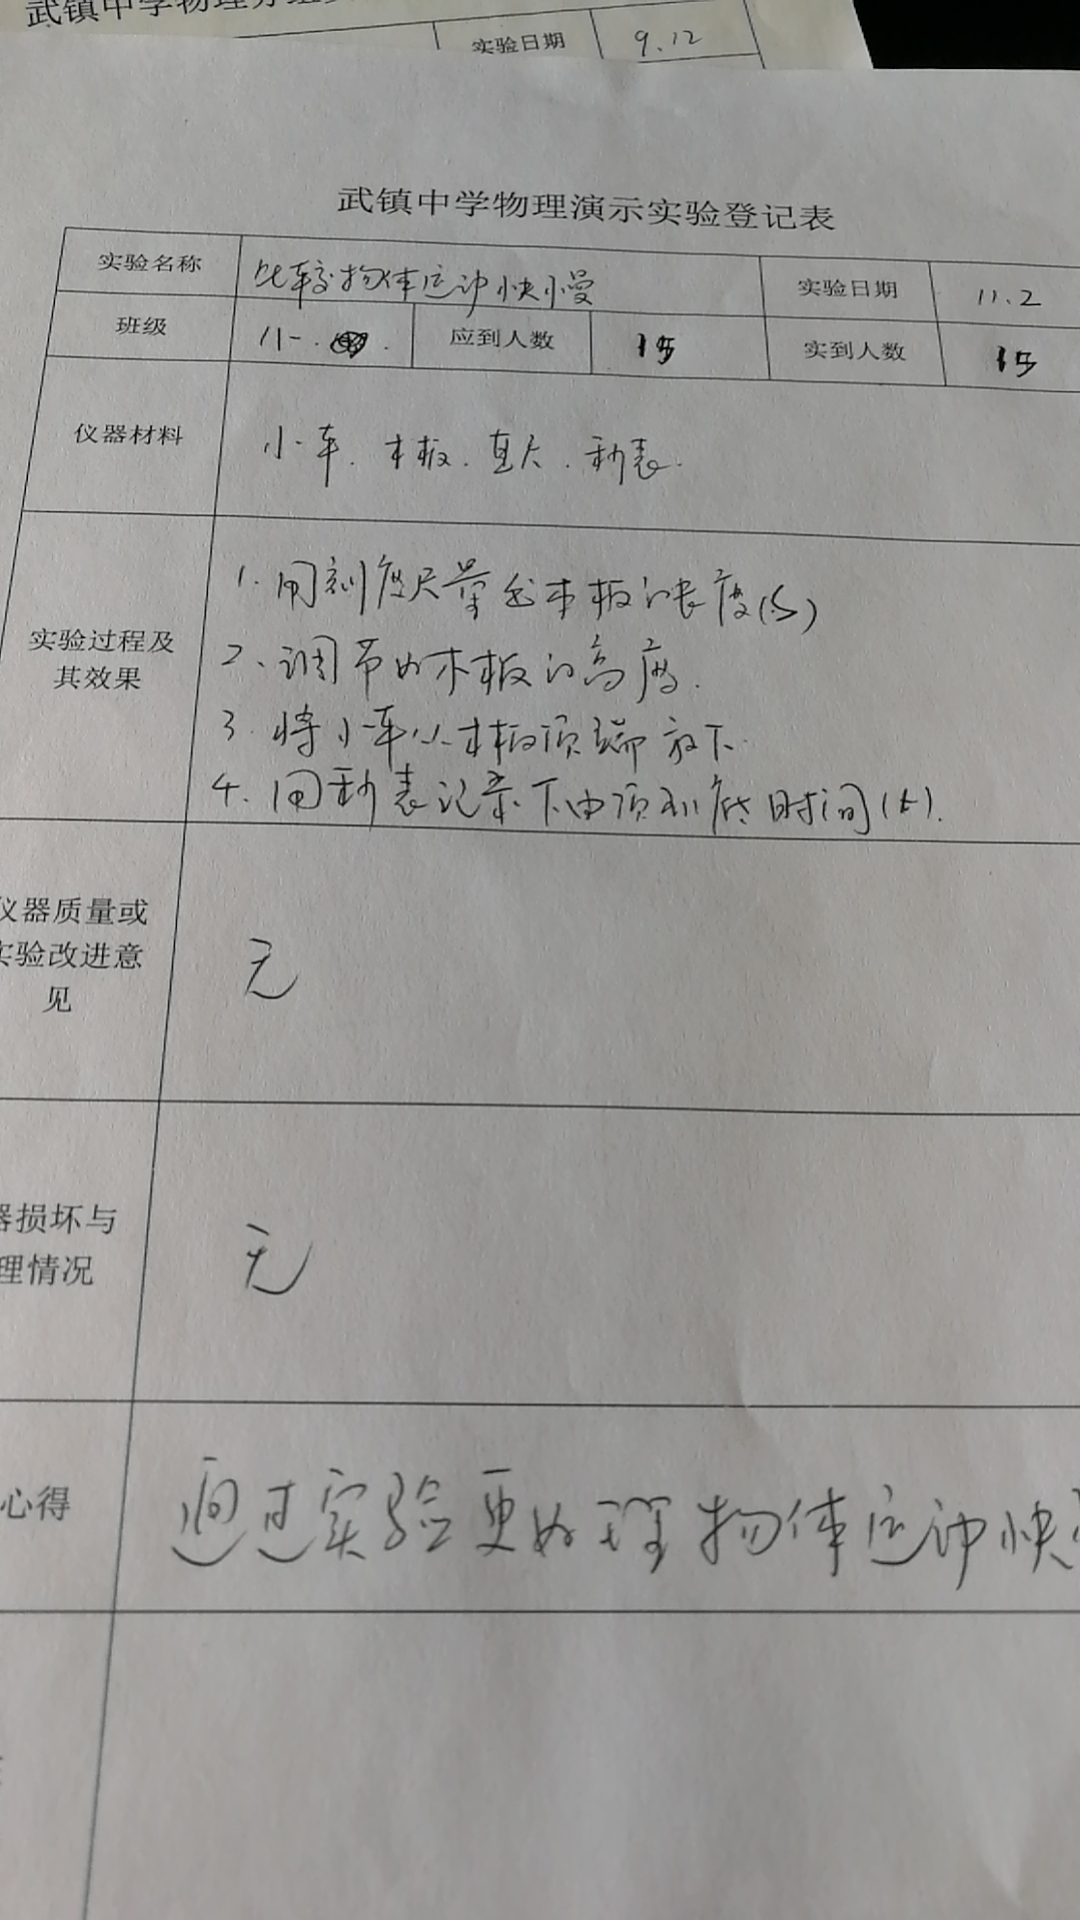 武镇中学物理
实验日期 9.12
武镇中学物理演示实验登记表
实验名称 比较物体运动快慢 实验日期 11.2
班级 八一. 应到人数 15 实到人数 15
仪器材料 小车、木板、直尺、秒表.
实验过程及其效果
1. 用刻度尺量出木板的长度(s)
2、调节好木板的高度.
3. 将小车从木板顶端放下.
4. 用秒表记录下由顶到底时间(t).
仪器质量或
实验改进意
见
无
器损坏与
理情况
无
心得 通过实验更好理物体运动快